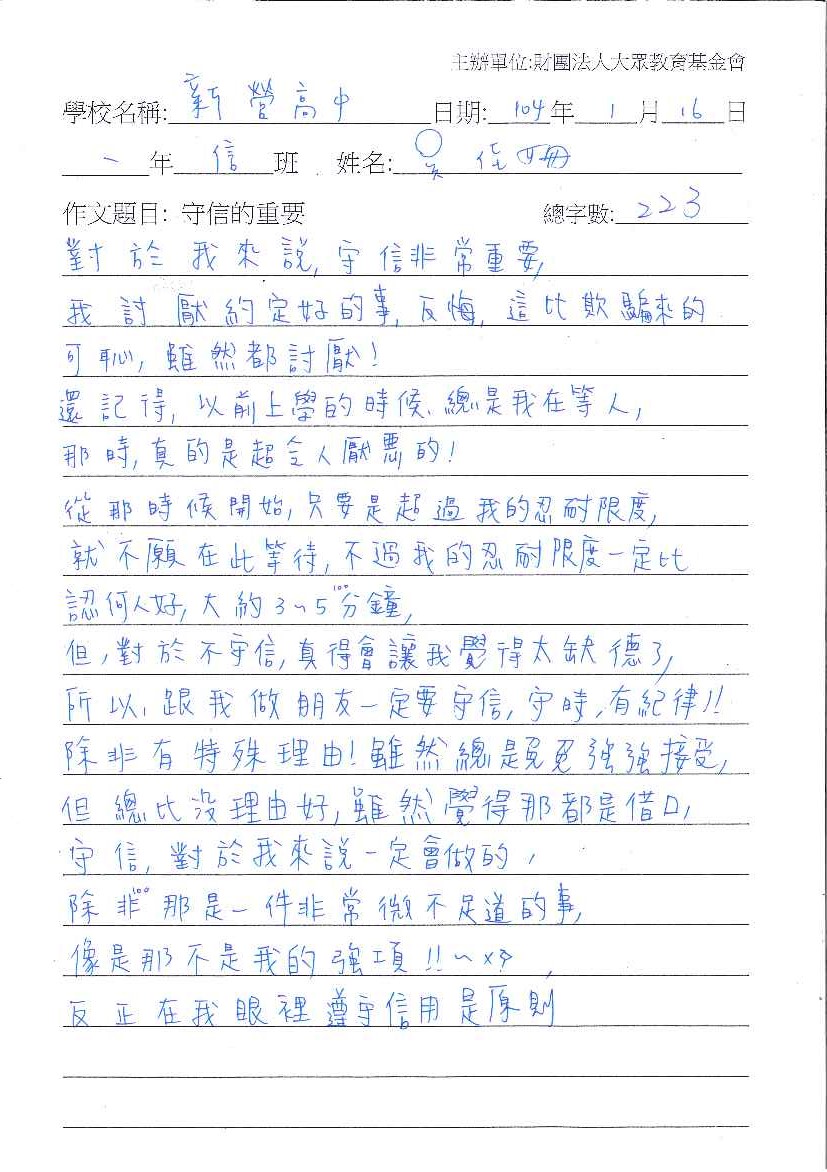 主辦單位:財團法人大眾教育基金會
學校名稱: 新營高中 日期: 104年 1月 16日
一年 信 班 姓名: 吳佳
作文題目: 守信的重要 總字數: 223
對於我來說,守信非常重要,
我討厭約定好的事,反悔,這比欺騙來的
可恥,雖然都討厭!
還記得,以前上學的時候、總是我在等人,
那時,真的是超令人厭惡的!
從那時候開始,只要是超過我的忍耐限度,
就不願在此等待,不過我的忍耐限度一定比
認何人好,大約3~5分鐘,
但,對於不守信,真得會讓我覺得太缺德了,
所以,跟我做朋友一定要守信,守時,有紀律!!
除非有特殊理由!雖然總是免免強強接受,
但總比沒理由好,雖然覺得那都是借口,
守信,對於我來說一定會做的,
除非那是一件非常微不足道的事,
像是那不是我的強項!!~
反正在我眼裡遵守信用是原則